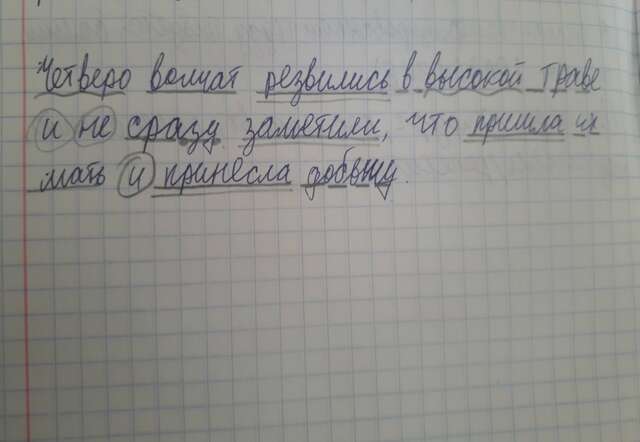 Четверо волчат резвились в высокой траве
и не сразу заметили, что пришла их
мать и принесла добычу.